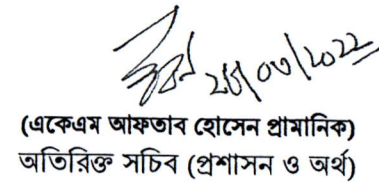 (একেএম আফতাব হোসেন প্রামানিক)
অতিরিক্ত সচিব (প্রশাসন ও অর্থ)